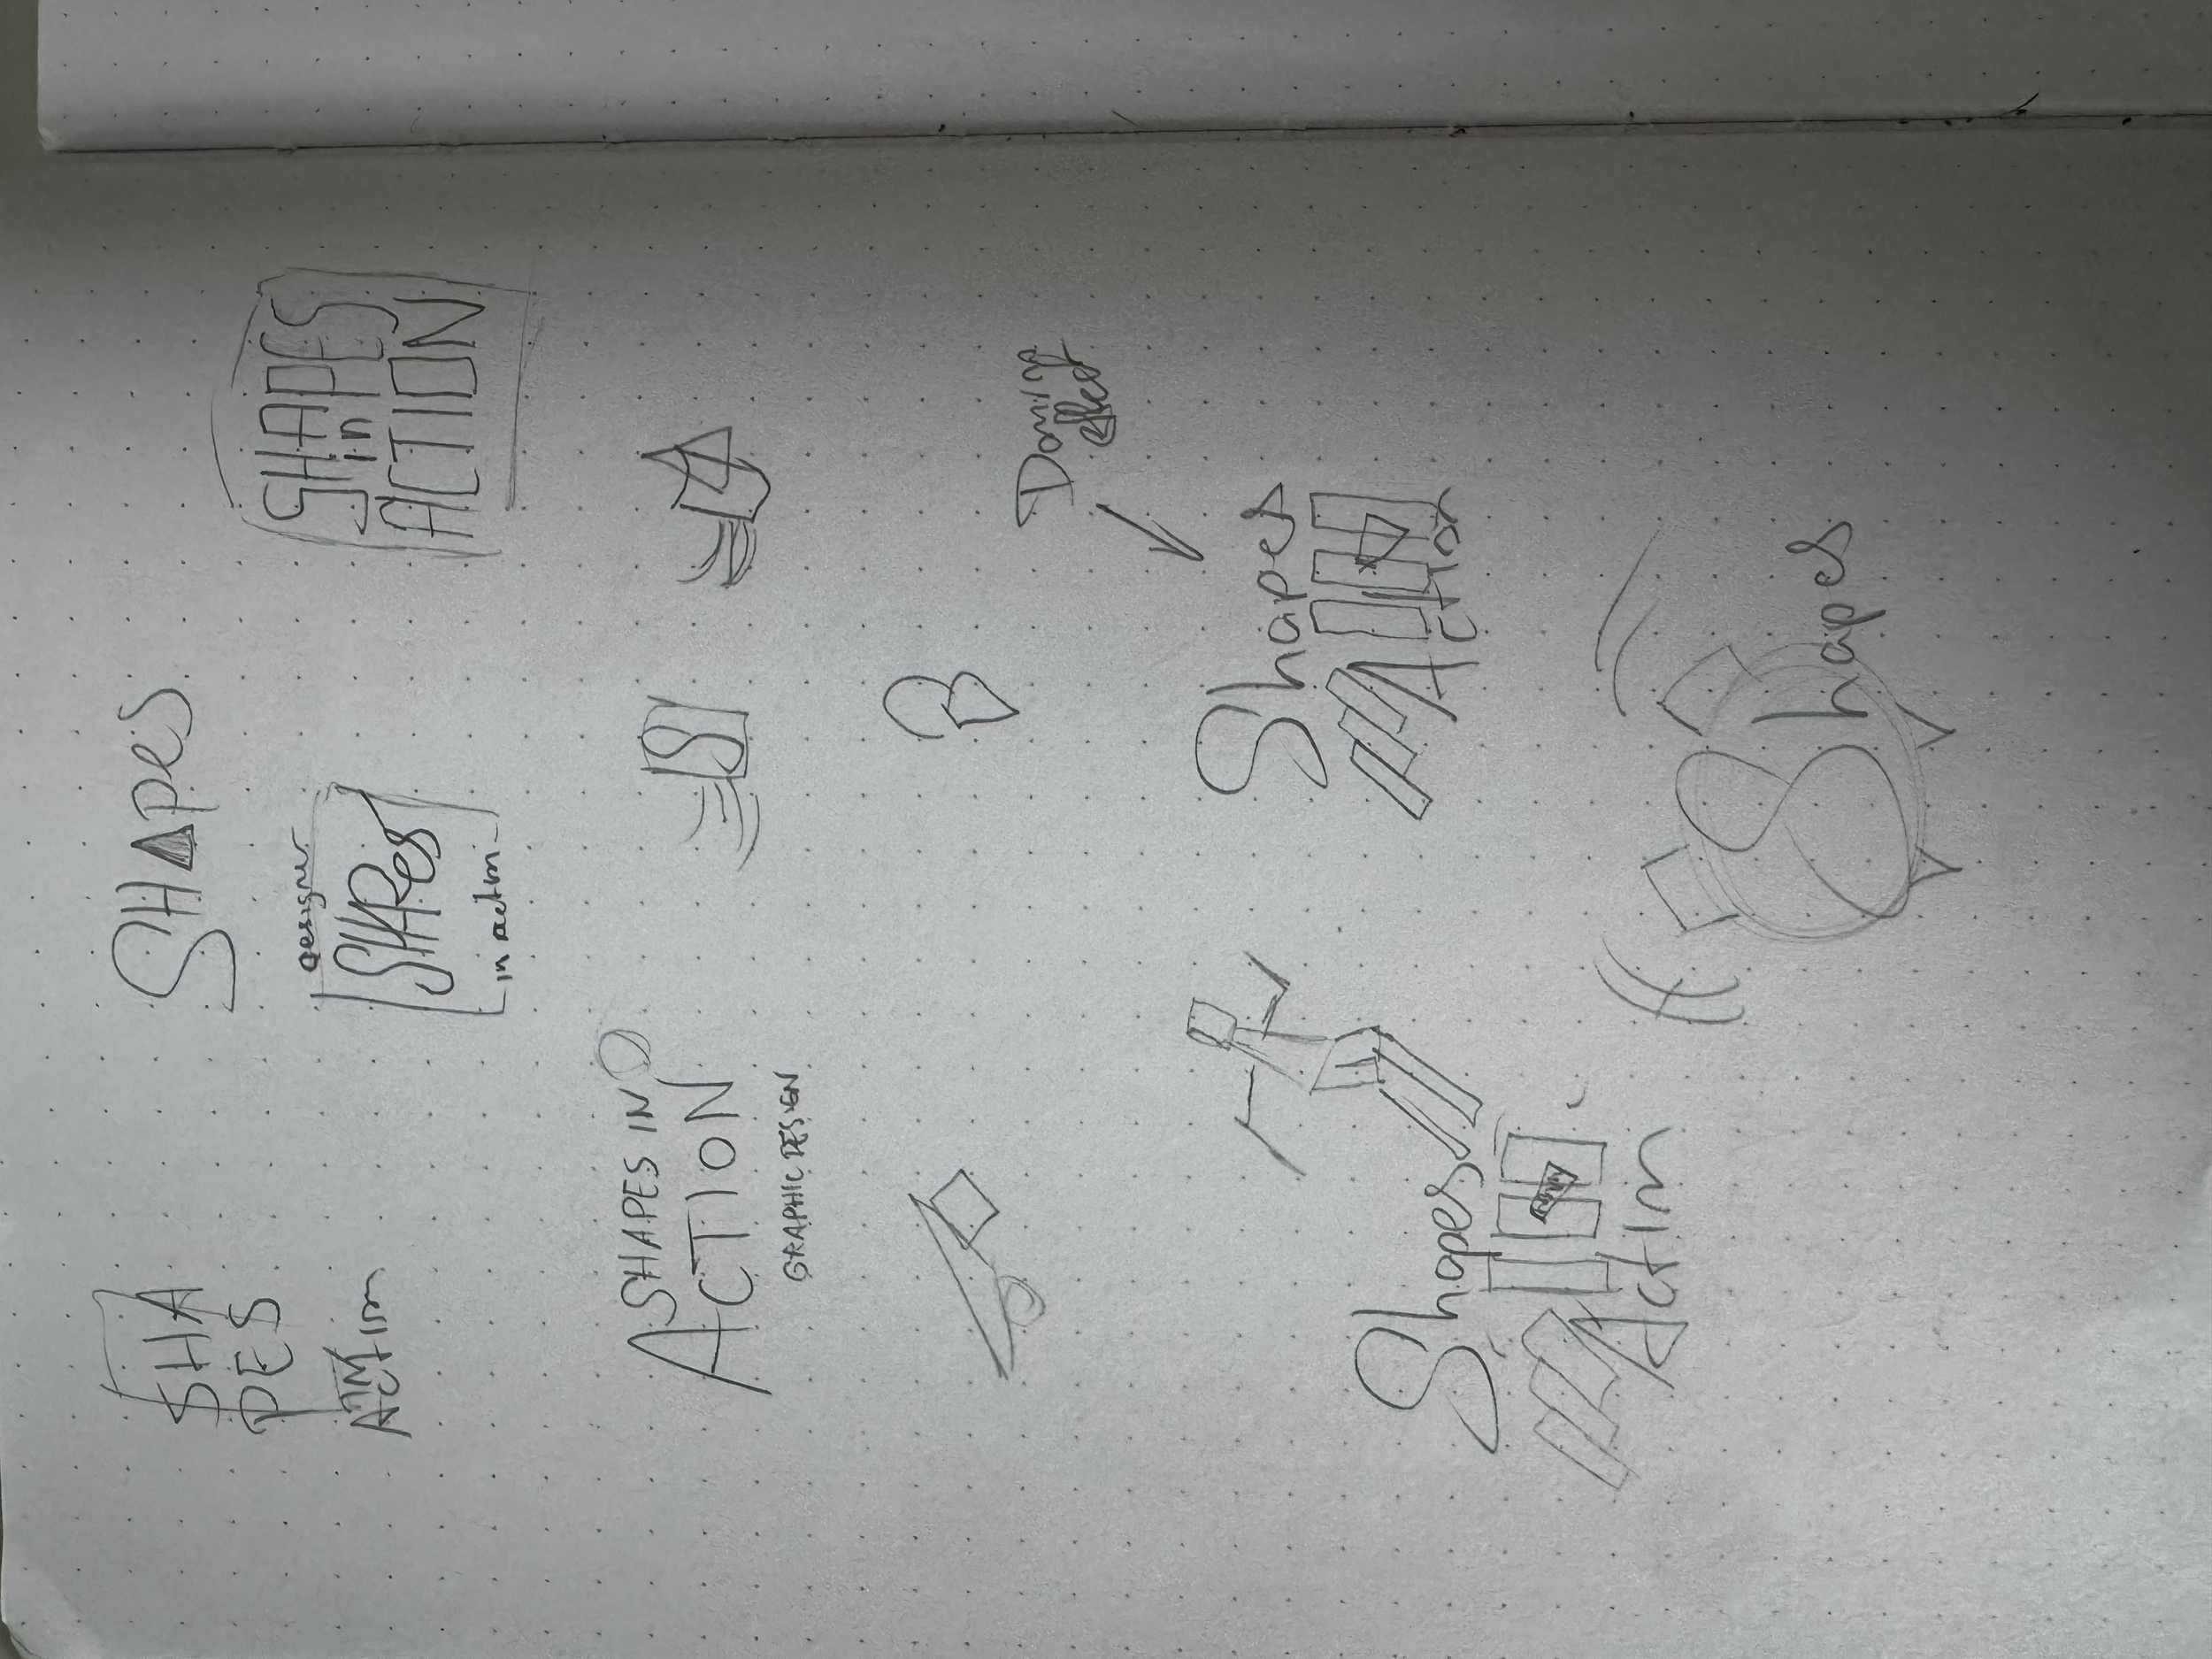 SHA
PES
IN
Action
SHAPES
designer
SHAPes
in action
SHAPES
in
ACTION
SHAPES IN
ACTION
GRAPHIC DESIGN
S
Domino
effect
Shapes
Action
Shapes
Action
Shapes